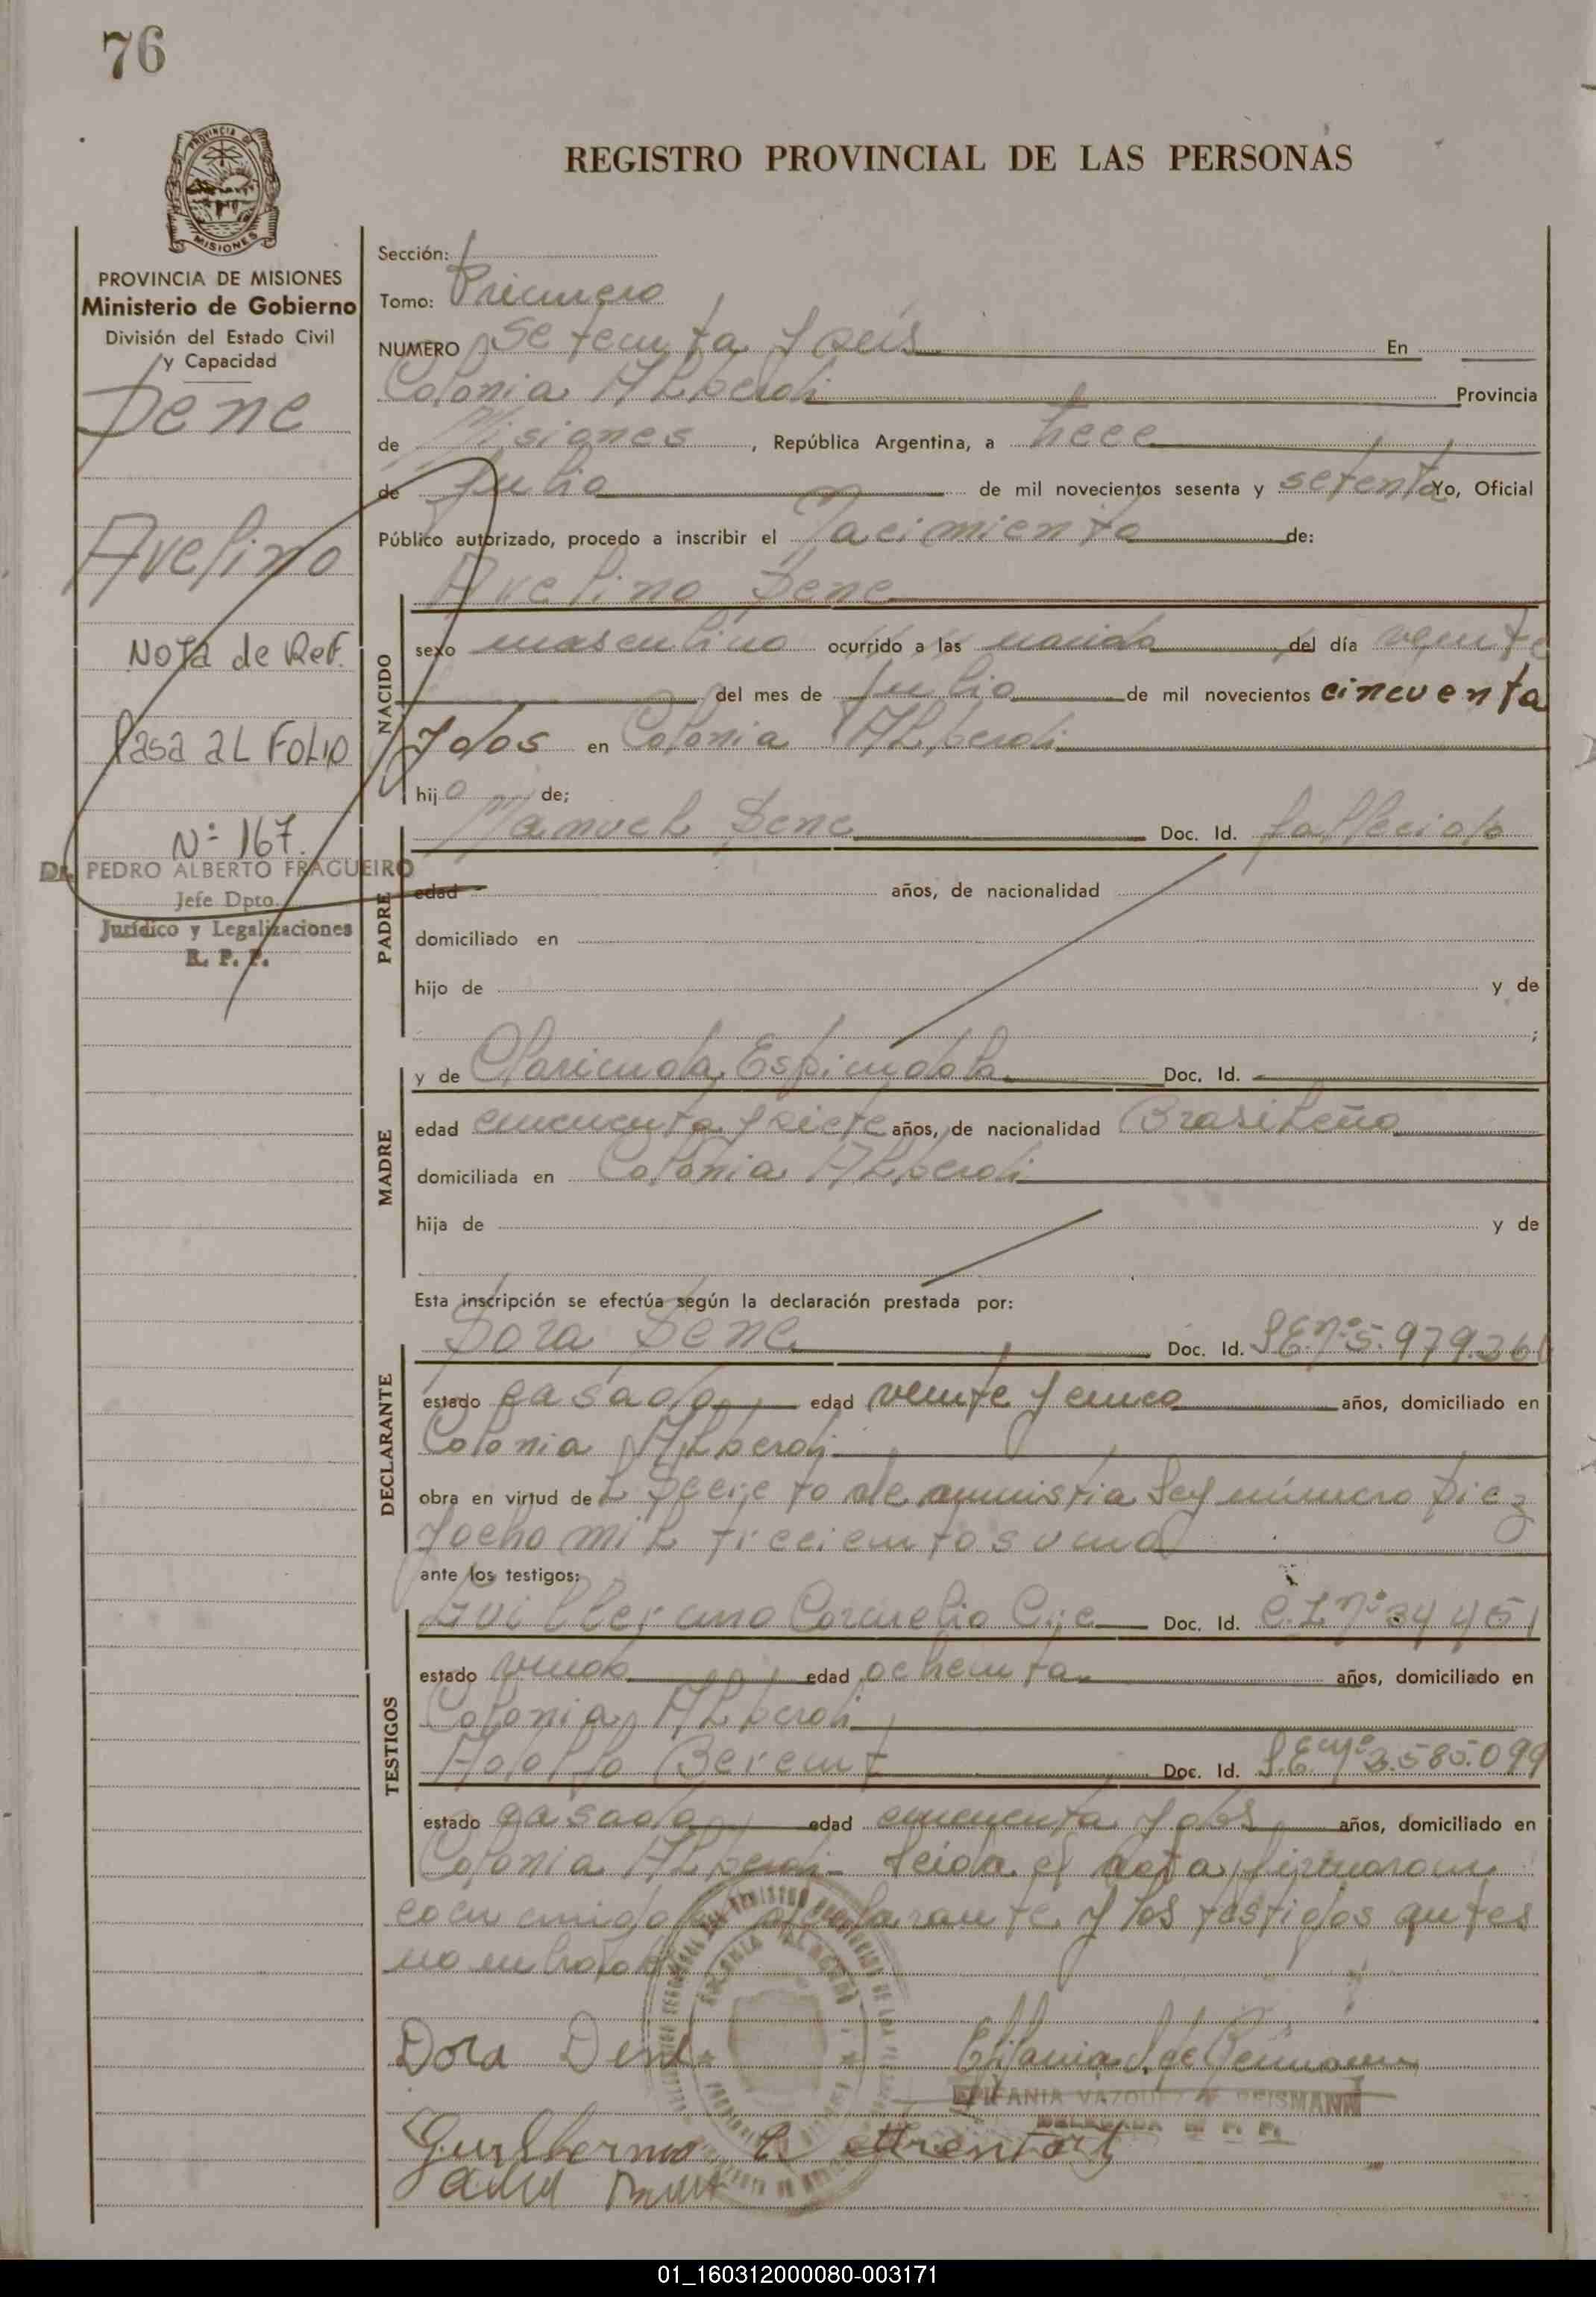 76
PROVINCIA DE
MISIONES
REGISTRO PROVINCIAL DE LAS PERSONAS
PROVINCIA DE MISIONES
Ministerio de Gobierno
División del Estado Civil
y Capacidad
Dene
Avelino
Nota de Ref.
Pasa al Folio
Nº 167.
Dr. PEDRO ALBERTO FRAGUEIRO
Jefe Dpto.
Jurídico y Legalizaciones
R. P. P.
Sección:
Tomo: Primero
NUMERO Setenta y seis En
Colonia Alberdi Provincia
de Misiones, República Argentina, a trece
de Julio de mil novecientos sesenta y setenta Yo, Oficial
Público autorizado, procedo a inscribir el Nacimiento de:
NACIDO
Avelino Dene
sexo masculino ocurrido a las del día veinte
del mes de Julio de mil novecientos cincuenta
y dos en Colonia Alberdi
hijo de;
PADRE
Manuel Dene Doc. Id. fallecido
edad años, de nacionalidad
domiciliado en
hijo de y de
;
MADRE
y de Clarinda Espindola Doc. Id.
edad cincuenta y siete años, de nacionalidad Brasileña
domiciliada en Colonia Alberdi
hija de y de
Esta inscripción se efectúa según la declaración prestada por:
DECLARANTE
Dora Dene Doc. Id. 5.979.36
estado casada edad veinte y cinco años, domiciliado en
Colonia Alberdi
obra en virtud del Decreto de amnistia Ley número Diez
y ocho mil trecientos uno
ante los testigos:
TESTIGOS
Guillermo Cornelio Doc. Id. C.I. Nº 34451
estado viudo edad ochenta años, domiciliado en
Colonia Alberdi
Adolfo Berent Doc. Id. 3.585.099
estado casado edad cincuenta y dos años, domiciliado en
Colonia Alberdi- Leida el Acta firmaron
conmigo la declarante y los testigos antes
nombrados
Dora Dene
Epifania V. de Reismann
EPIFANIA VAZQUEZ DE REISMANN
DELEGADA R. P. P.
Guillermo C
01_160312000080-003171